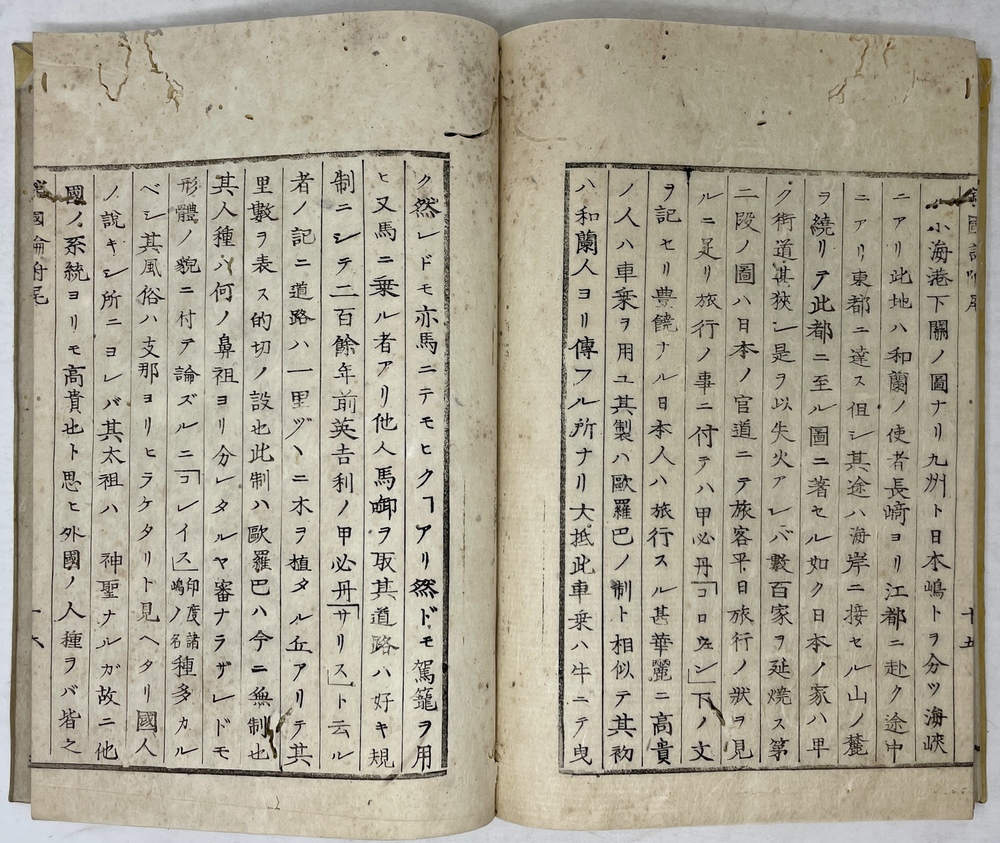 小海港下關ノ圖ナリ九州ト日本嶋トヲ分ツ海峽
ニアリ此地ハ和蘭ノ使者長﨑ヨリ江都ニ赴ク途中
ニアリ東都ニ達ス但シ其途ハ海岸ニ接セル山ノ麓
ヲ繞リテ此都ニ至ル圖ニ著セル如ク日本ノ家ハ甲
ク街道甚狹シ是ヲ以失火アレバ數百家ヲ延燒ス第
二段ノ圖ハ日本ノ官道ニテ旅客平日旅行ノ狀ヲ見
ルニ足リ旅行ノ事ニ付テハ甲必丹「コロウェン」下ノ文
ヲ記セリ豊饒ナル日本人ハ旅行スル甚華麗ニ高貴
ノ人ハ車乗ヲ用ユ其製ハ歐羅巴ノ制ト相似テ其初
ハ和蘭人ヨリ傳フル所ナリ大抵此車乗ハ牛ニテ曳
十五
ク然レドモ亦馬ニテモヒクヿアリ然ドモ駕籠ヲ用
ヒ又馬ニ乗ル者アリ他人馬御ヲ取其道路ハ好キ規
制ニシテ二百餘年前英吉利ノ甲必丹「サリス」ト云ル
者ノ記ニ道路ハ一里ヅヽニ木ヲ植タル丘アリテ其
里數ヲ表ス的切ノ設也此制ハ歐羅巴ハ今ニ無制也
其人種ハ何ノ鼻祖ヨリ分レタルヤ審ナラザレドモ
形體ノ貌ニ付テ論ズルニ「コレイス」印度諸嶋ノ名種多カル
ベシ其風俗ハ支那ヨリヒラケタリト見ヘタリ國人
ノ說キシ所ニヨレバ其太祖ハ 神聖ナルガ故ニ他
國ノ系統ヨリモ高貴也ト思ヒ外國ノ人種ヲバ皆之
國論附尾